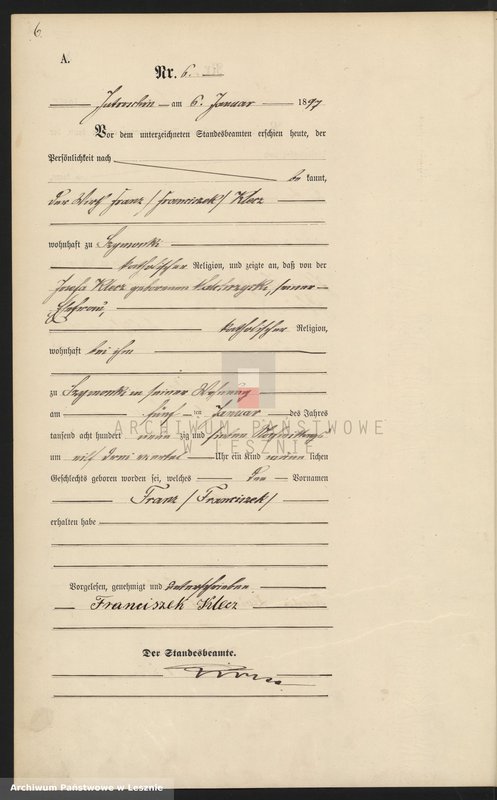 6.
A.
Nr. 6.
Jutroschin am 6. Januar 1897
Vor dem unterzeichneten Standesbeamten erschien heute, der
Persönlichkeit nach
be kannt,
der Wirth Franz /Franciszek/ Klecz
wohnhaft zu Szymonki
katholischer Religion, und zeigte an, daß von der
Josefa Klecz geborenen seiner
Ehefrau,
katholischer Religion,
wohnhaft bei ihm
zu Szymonki in seiner Wohnung
am fünf ten Januar des Jahres
tausend acht hundert neun zig und sieben Vormittags
um elf drei viertel Uhr ein Kind männ lichen
Geschlechts geboren worden sei, welches den Vornamen
Franz /Franciszek/
erhalten habe
Vorgelesen, genehmigt und unterschrieben
Franciszek Klecz
Der Standesbeamte.
ARCHIWUM PAŃSTWOWE
W LESZNIE
Archiwum Państwowe w Lesznie